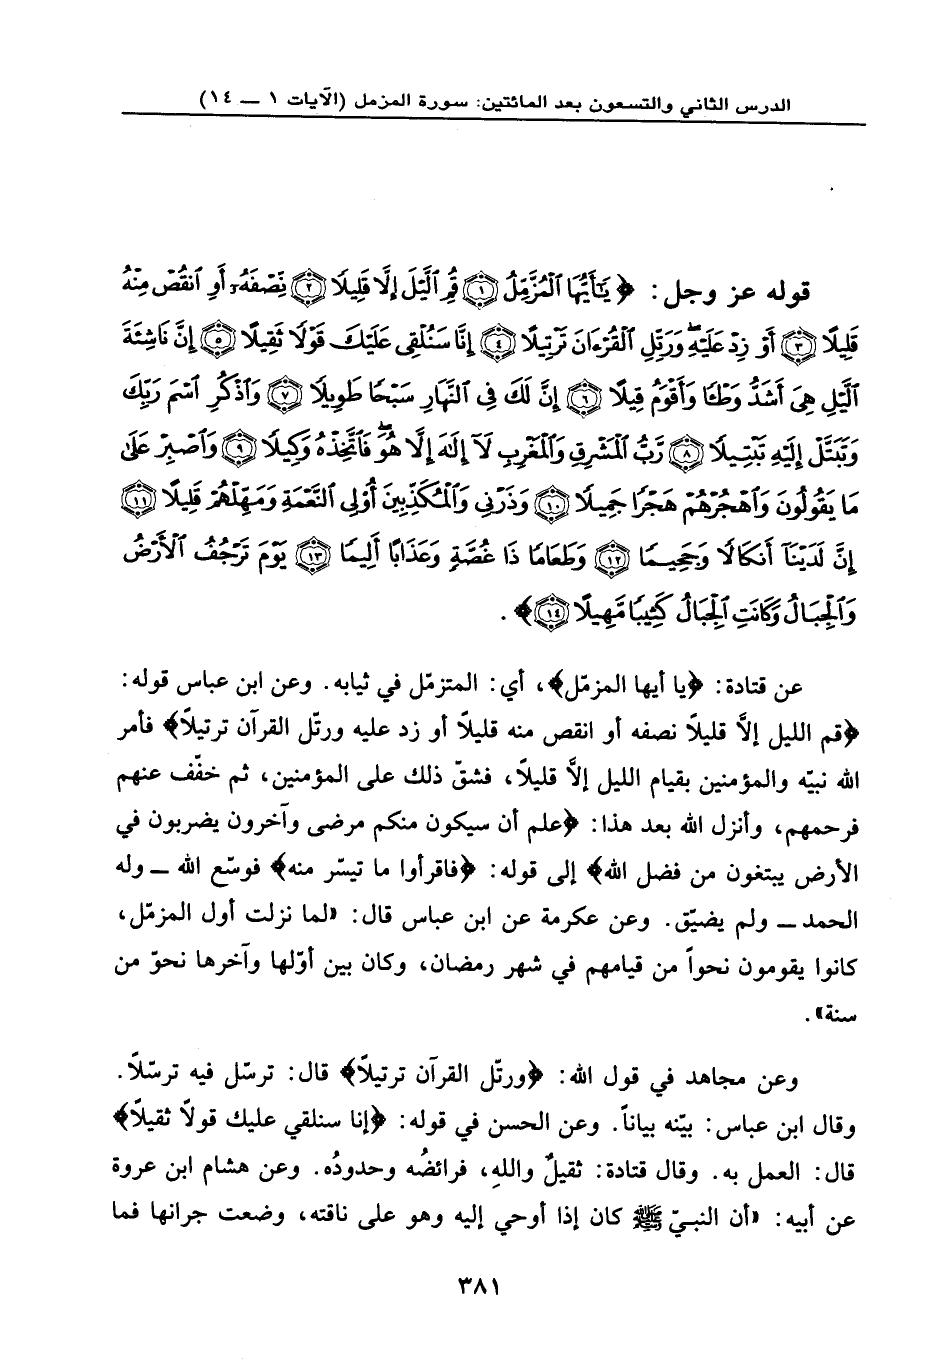 الدرس الثاني والتسعون بعد المائتين: سورة المزمل (الآيات ١ ــ ١٤)
قوله عز وجل: ﴿يَٰٓأَيُّهَا ٱلْمُزَّمِّلُ ١ قُمِ ٱلَّيْلَ إِلَّا قَلِيلًا ٢ نِّصْفَهُۥٓ أَوِ ٱنقُصْ مِنْهُ
قَلِيلًا ٣ أَوْ زِدْ عَلَيْهِ وَرَتِّلِ ٱلْقُرْءَانَ تَرْتِيلًا ٤ إِنَّا سَنُلْقِى عَلَيْكَ قَوْلًا ثَقِيلًا ٥ إِنَّ نَاشِئَةَ
ٱلَّيْلِ هِىَ أَشَدُّ وَطْـًٔا وَأَقْوَمُ قِيلًا ٦ إِنَّ لَكَ فِى ٱلنَّهَارِ سَبْحًا طَوِيلًا ٧ وَٱذْكُرِ ٱسْمَ رَبِّكَ
وَتَبَتَّلْ إِلَيْهِ تَبْتِيلًا ٨ رَّبُّ ٱلْمَشْرِقِ وَٱلْمَغْرِبِ لَآ إِلَٰهَ إِلَّا هُوَ فَٱتَّخِذْهُ وَكِيلًا ٩ وَٱصْبِرْ عَلَىٰ
مَا يَقُولُونَ وَٱهْجُرْهُمْ هَجْرًا جَمِيلًا ١٠ وَذَرْنِى وَٱلْمُكَذِّبِينَ أُو۟لِى ٱلنَّعْمَةِ وَمَهِّلْهُمْ قَلِيلًا ١١
إِنَّ لَدَيْنَآ أَنكَالًا وَجَحِيمًا ١٢ وَطَعَامًا ذَا غُصَّةٍ وَعَذَابًا أَلِيمًا ١٣ يَوْمَ تَرْجُفُ ٱلْأَرْضُ
وَٱلْجِبَالُ وَكَانَتِ ٱلْجِبَالُ كَثِيبًا مَّهِيلًا ١٤﴾ .
عن قتادة: ﴿يا أيها المزمّل﴾، أي: المتزمّل في ثيابه. وعن ابن عباس قوله:
﴿قم الليل إلاَّ قليلاً نصفه أو انقص منه قليلاً أو زد عليه ورتّل القرآن ترتيلاً﴾ فأمر
الله نبيّه والمؤمنين بقيام الليل إلاَّ قليلاً، فشقّ ذلك على المؤمنين، ثم خفّف عنهم
فرحمهم، وأنزل الله بعد هذا: ﴿علم أن سيكون منكم مرضى وآخرون يضربون في
الأرض يبتغون من فضل الله﴾ إلى قوله: ﴿فاقرأوا ما تيسّر منه﴾ فوسّع الله ــ وله
الحمد ــ ولم يضيّق. وعن عكرمة عن ابن عباس قال: «لما نزلت أول المزمّل،
كانوا يقومون نحواً من قيامهم في شهر رمضان، وكان بين أوّلها وآخرها نحوّ من
سنة».
وعن مجاهد في قول الله: ﴿ورتّل القرآن ترتيلاً﴾ قال: ترسّل فيه ترسّلاً.
وقال ابن عباس: بيّنه بياناً. وعن الحسن في قوله: ﴿إنا سنلقي عليك قولاً ثقيلاً﴾
قال: العمل به. وقال قتادة: ثقيلٌ واللهِ، فرائضُه وحدودُه. وعن هشام ابن عروة
عن أبيه: «أن النبيّ ﷺ كان إذا أوحي إليه وهو على ناقته، وضعت جرانها فما
٣٨١